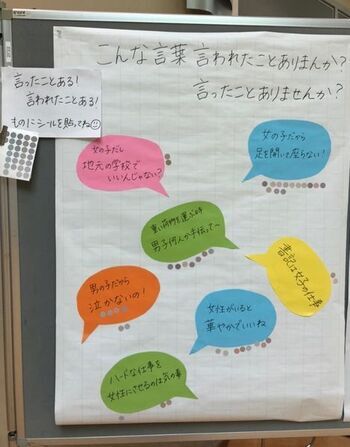 こんな言葉 言われたことありまんか?
言ったことありませんか?
言ったことある!
言われたことある!
ものにシールを貼ってね
女の子だし
地元の学校で
いいんじゃない?
女の子だから
足を開いて座らない!
重い荷物を運ぶ時
男子何人か手伝って〜
書記は女子の仕事
男の子だから
泣かないの!
女性がいると
華やかでいいね
ハードな仕事を
女性にさせるのは気の毒